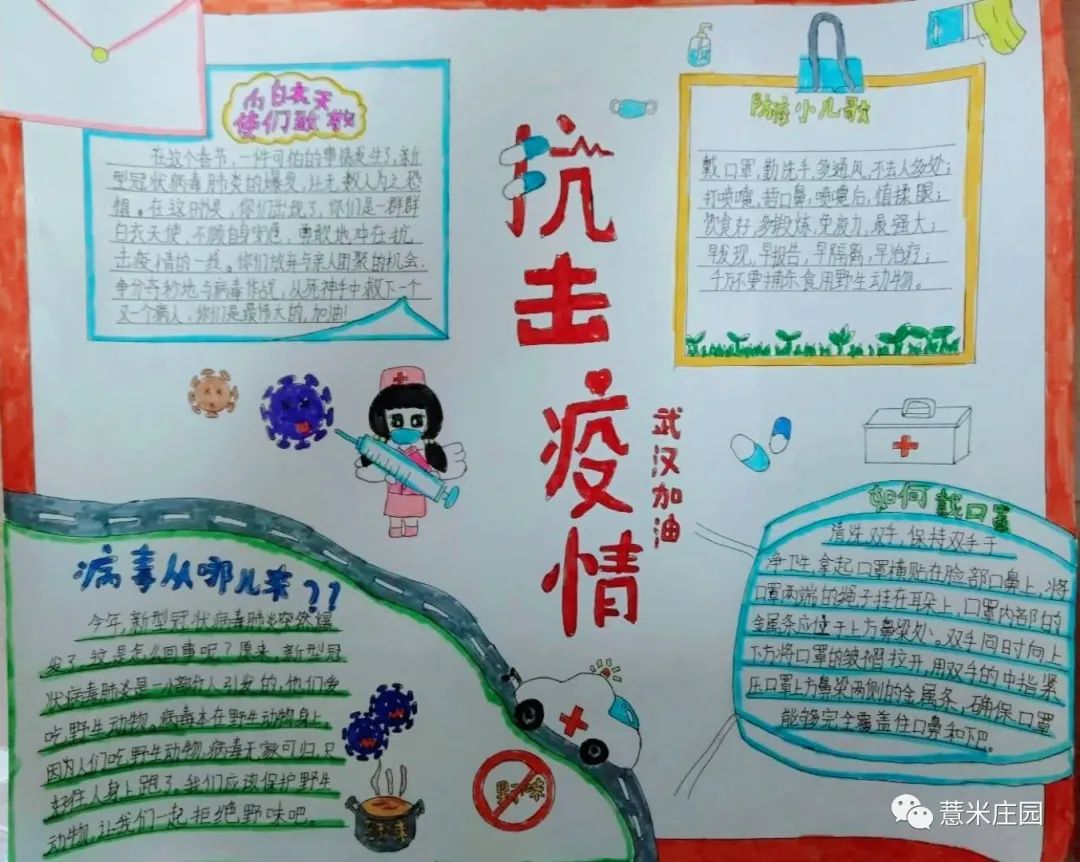 向白衣天
使们致敬
在这个春节,一件可怕的事情发生了,新
型冠状病毒肺炎的爆发,让无数人为之恐
惧。在这时候,你们出现了,你们是一群群
白衣天使,不顾自身安危,勇敢地冲在抗
击疫情的一线。你们放弃与亲人团聚的机会,
争分夺秒地与病毒作战,从死神手中救下一个
又一个病人,你们是最伟大的,加油!
抗击疫情
武汉加油
防疫小儿歌
戴口罩,勤洗手,多通风,不去人多处;
打喷嚏,捂口鼻,喷嚏后,慎揉眼;
饮食好,多锻炼,免疫力,最强大;
早发现,早报告,早隔离,早治疗;
千万不要捕杀食用野生动物。
病毒从哪儿来??
今年,新型冠状病毒肺炎突然爆
发了,这是怎么回事呢?原来,新型冠
状病毒肺炎是一部分人引发的,他们爱
吃野生动物。病毒本在野生动物身上,
因为人们吃野生动物,病毒无家可归,只
好往人身上跑了。我们应该保护野生
动物,让我们一起拒绝野味吧。
野味
野味
如何戴口罩
清洗双手,保持双手干
净卫生,拿起口罩横贴在脸部口鼻上,将
口罩两端的绳子挂在耳朵上,口罩内部的
金属条应位于上方鼻梁处。双手同时向上
下方将口罩的皱褶拉开,用双手的中指紧
压口罩上方鼻梁两侧的金属条,确保口罩
能够完全覆盖住口鼻和下巴。
薏米庄园